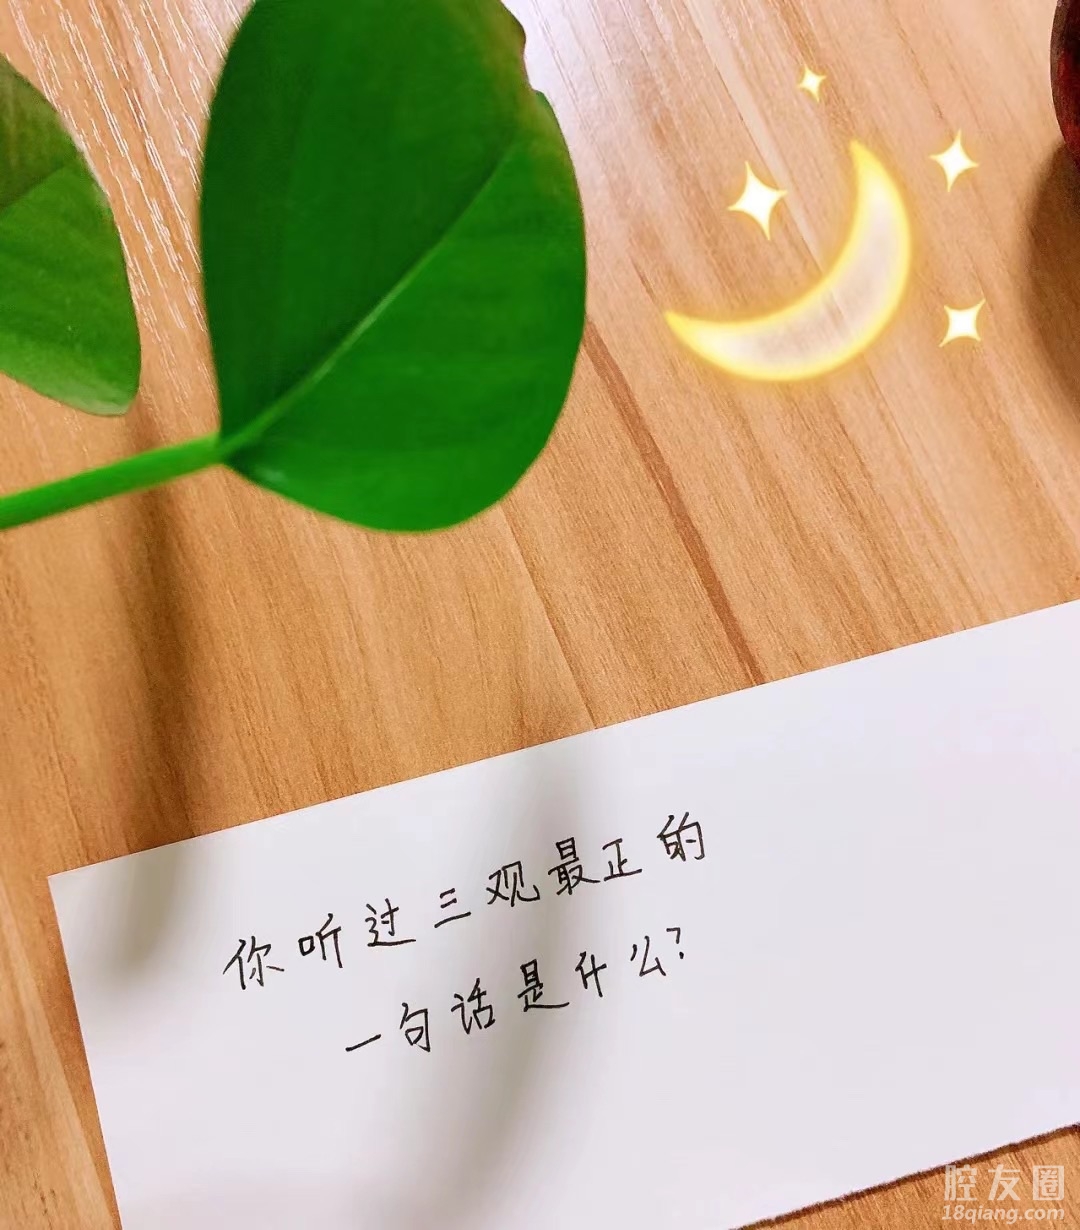 你听过三观最正的
一句话是什么?
腔友圈
18qiang.com